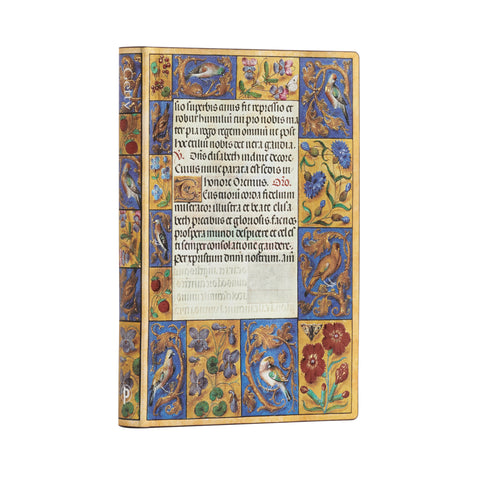 Getty
sio superbis anus fit repressio et
robur humiliũ cui pro nobis ma
ter pia rego regem omniũ ut post
hoc exiliũ nobis det vera gaudia.
V. Dñs elisabeth induit decore.
Cuius nunc parata est sedis in
honore Oremus. Orõ.
tuorũ corda fidelium
miserator illustra et beate elisa
beth precibus et gloriosis fac nos
prospera mundi despicere et celes
ti semper consolatione gaudere.
Per xpristum dnm nostrum. am